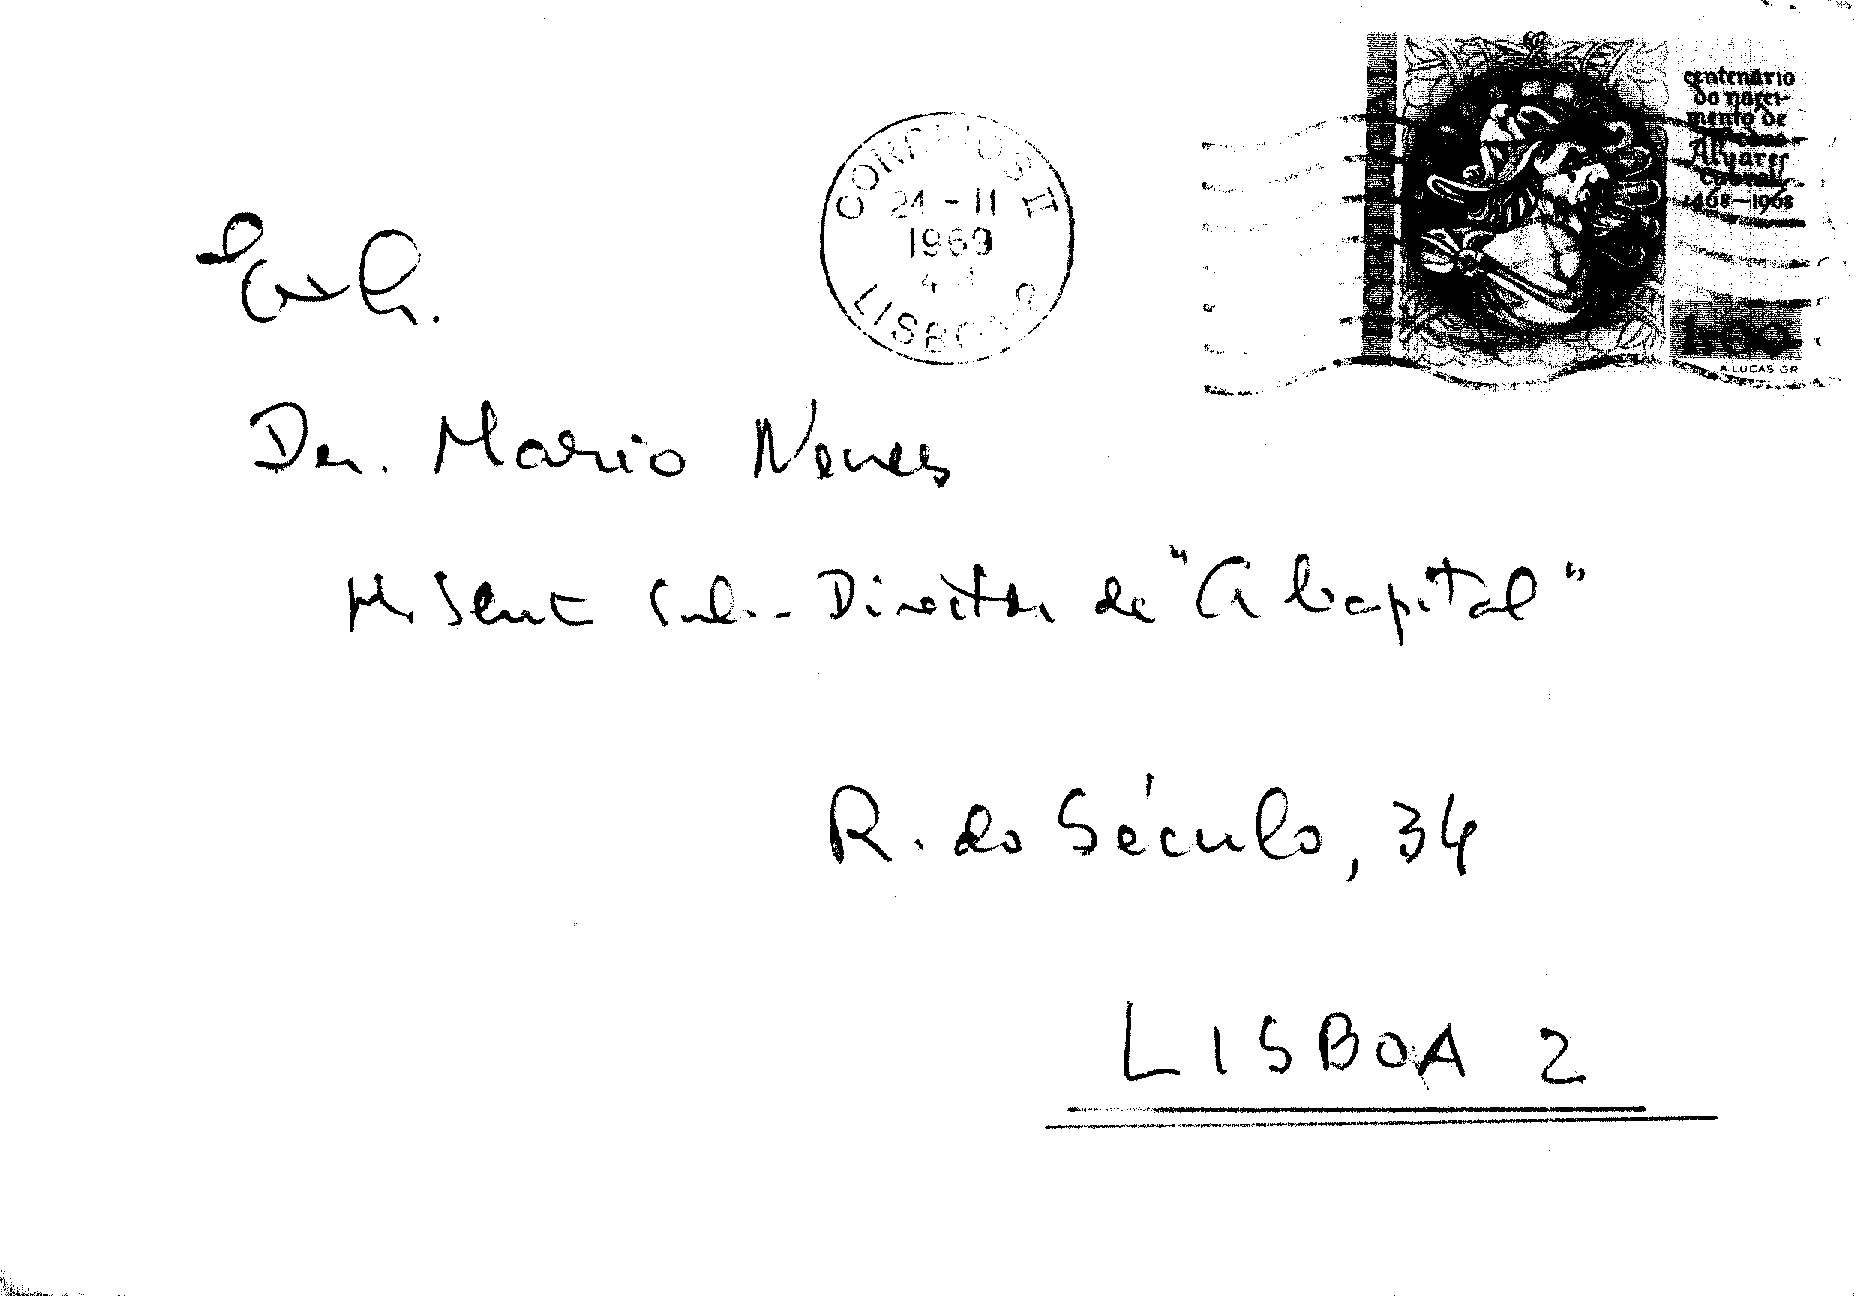 CORREIOS II
24 - II
1969
LISBOA
centenário
do nasci-
mento de
Álvares
Cabral
1468-1968
1$00
A. LUCAS GR
Dr. Mario Neves
Sub-Director de "A Capital"
R. do Século, 34
LISBOA 2